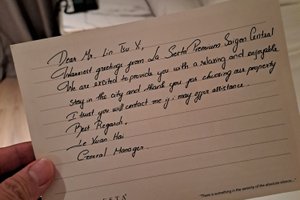 Dear Mr. Lin Tsu X,
Warmest greetings from La Siesta Premium Saigon Central
We are excited to provide you with a relaxing and enjoyable
stay in the city and thank you for choosing our property
I trust you will contact me if I may offer assistance.
Best Regards,
Le Xuan Hai
General Manager
"There is something in the serenity of the absolute silence..."